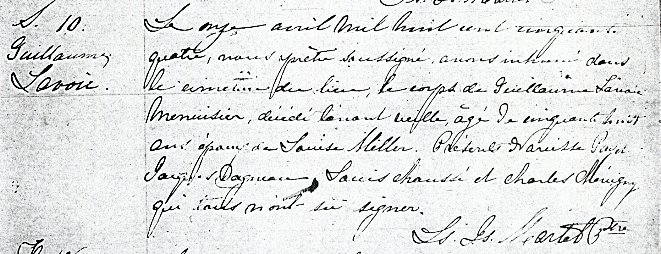 S. 10.
Guillaume
Lavoie.
Le onze avril mil huit cent cinquante
quatre, nous prêtre soussigné avons inhumé dans
le cimetière du lieu, le corps de Guillaume Lavoie
menuisier, décédé l'avant veille, âgé de cinquante huit
ans époux de Louise Miller. Présents Narcisse
Jacques Dagneau, Louis Chaussé et Charles
qui tous n'ont su signer.
Ls. Js. Martel Ptre